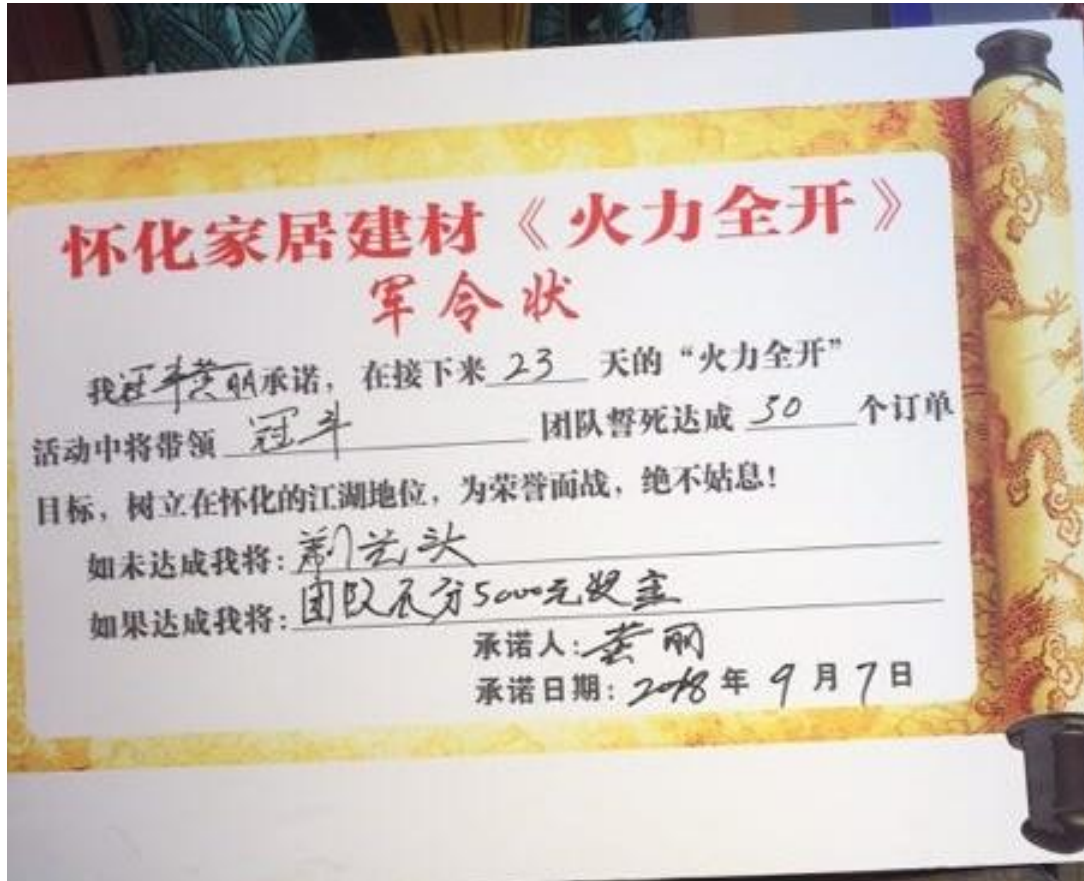 怀化家居建材《火力全开》
军令状
我冠斗黄丽承诺，在接下来 23 天的“火力全开”
活动中将带领 冠斗 团队誓死达成 50 个订单
目标，树立在怀化的江湖地位，为荣誉而战，绝不姑息！
如未达成我将：剃光头
如果达成我将：团队瓜分5000元奖金
承诺人：黄丽
承诺日期：2018年9月7日